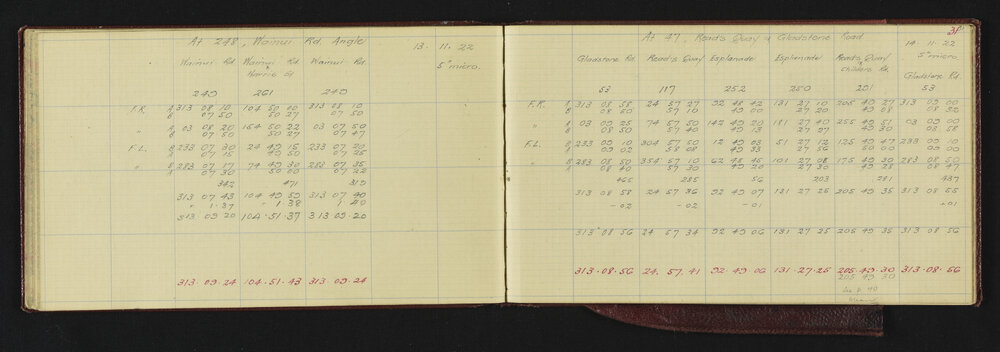 At 248, Wainui Rd. Angle
13. 11. 22
5" micro.
Wainui Rd. Wainui Rd. Wainui Rd.
& Harris St
249 261 249
F.R. A 313 08 10 104 50 00 313 08 10
B 07 50 50 27 07 50
" A 03 08 20 154 50 22 03 07 50
B 07 50 50 27 07 47
F.L. B 233 07 30 24 49 15 233 07 20
A 07 15 49 50 07 25
" B 283 07 17 74 49 30 283 07 35
A 07 30 50 00 07 22
342 471 319
313 07 43 104 49 59 313 07 40
" 1.37 1 38 1 40
313 09 20 104.51.37 313.09.20
313.09.24 104.51.43 313.09.24
31
At 47, Read's Quay & Gladstone Road
14.11.22
5" micro
Gladstone Rd. Read's Quay Esplanade Esplanade Read's Quay Gladstone Rd.
Childers Rd.
53 117 252 250 201 53
F.R. A 313 08 58 24 57 27 92 48 42 131 27 10 205 49 27 313 09 00
B 08 50 57 10 49 00 27 20 49 08 08 52
" A 03 09 25 74 57 50 142 49 20 181 27 40 255 49 51 03 09 00
B 08 50 57 40 49 13 27 27 49 30 08 58
F.L. B 233 09 10 304 57 50 12 49 03 51 27 12 125 49 47 233 09 10
A 09 00 58 08 49 33 27 56 50 00 09 00
" B 283 08 50 354 57 10 62 48 45 101 27 08 175 49 30 283 08 50
A 08 40 57 30 49 20 27 30 49 28 08 47
465 285 56 203 281 437
313 08 58 24 57 36 92 49 07 131 27 25 205 49 35 313 08 55
-02 -02 -01 +01
313 08 56 24 57 34 92 49 06 131 27 25 205 49 35 313 08 56
313.08.56 24.57.41 92.49.06 131.27.25 205.49.30 313.08.56
205 49 30
See p 40